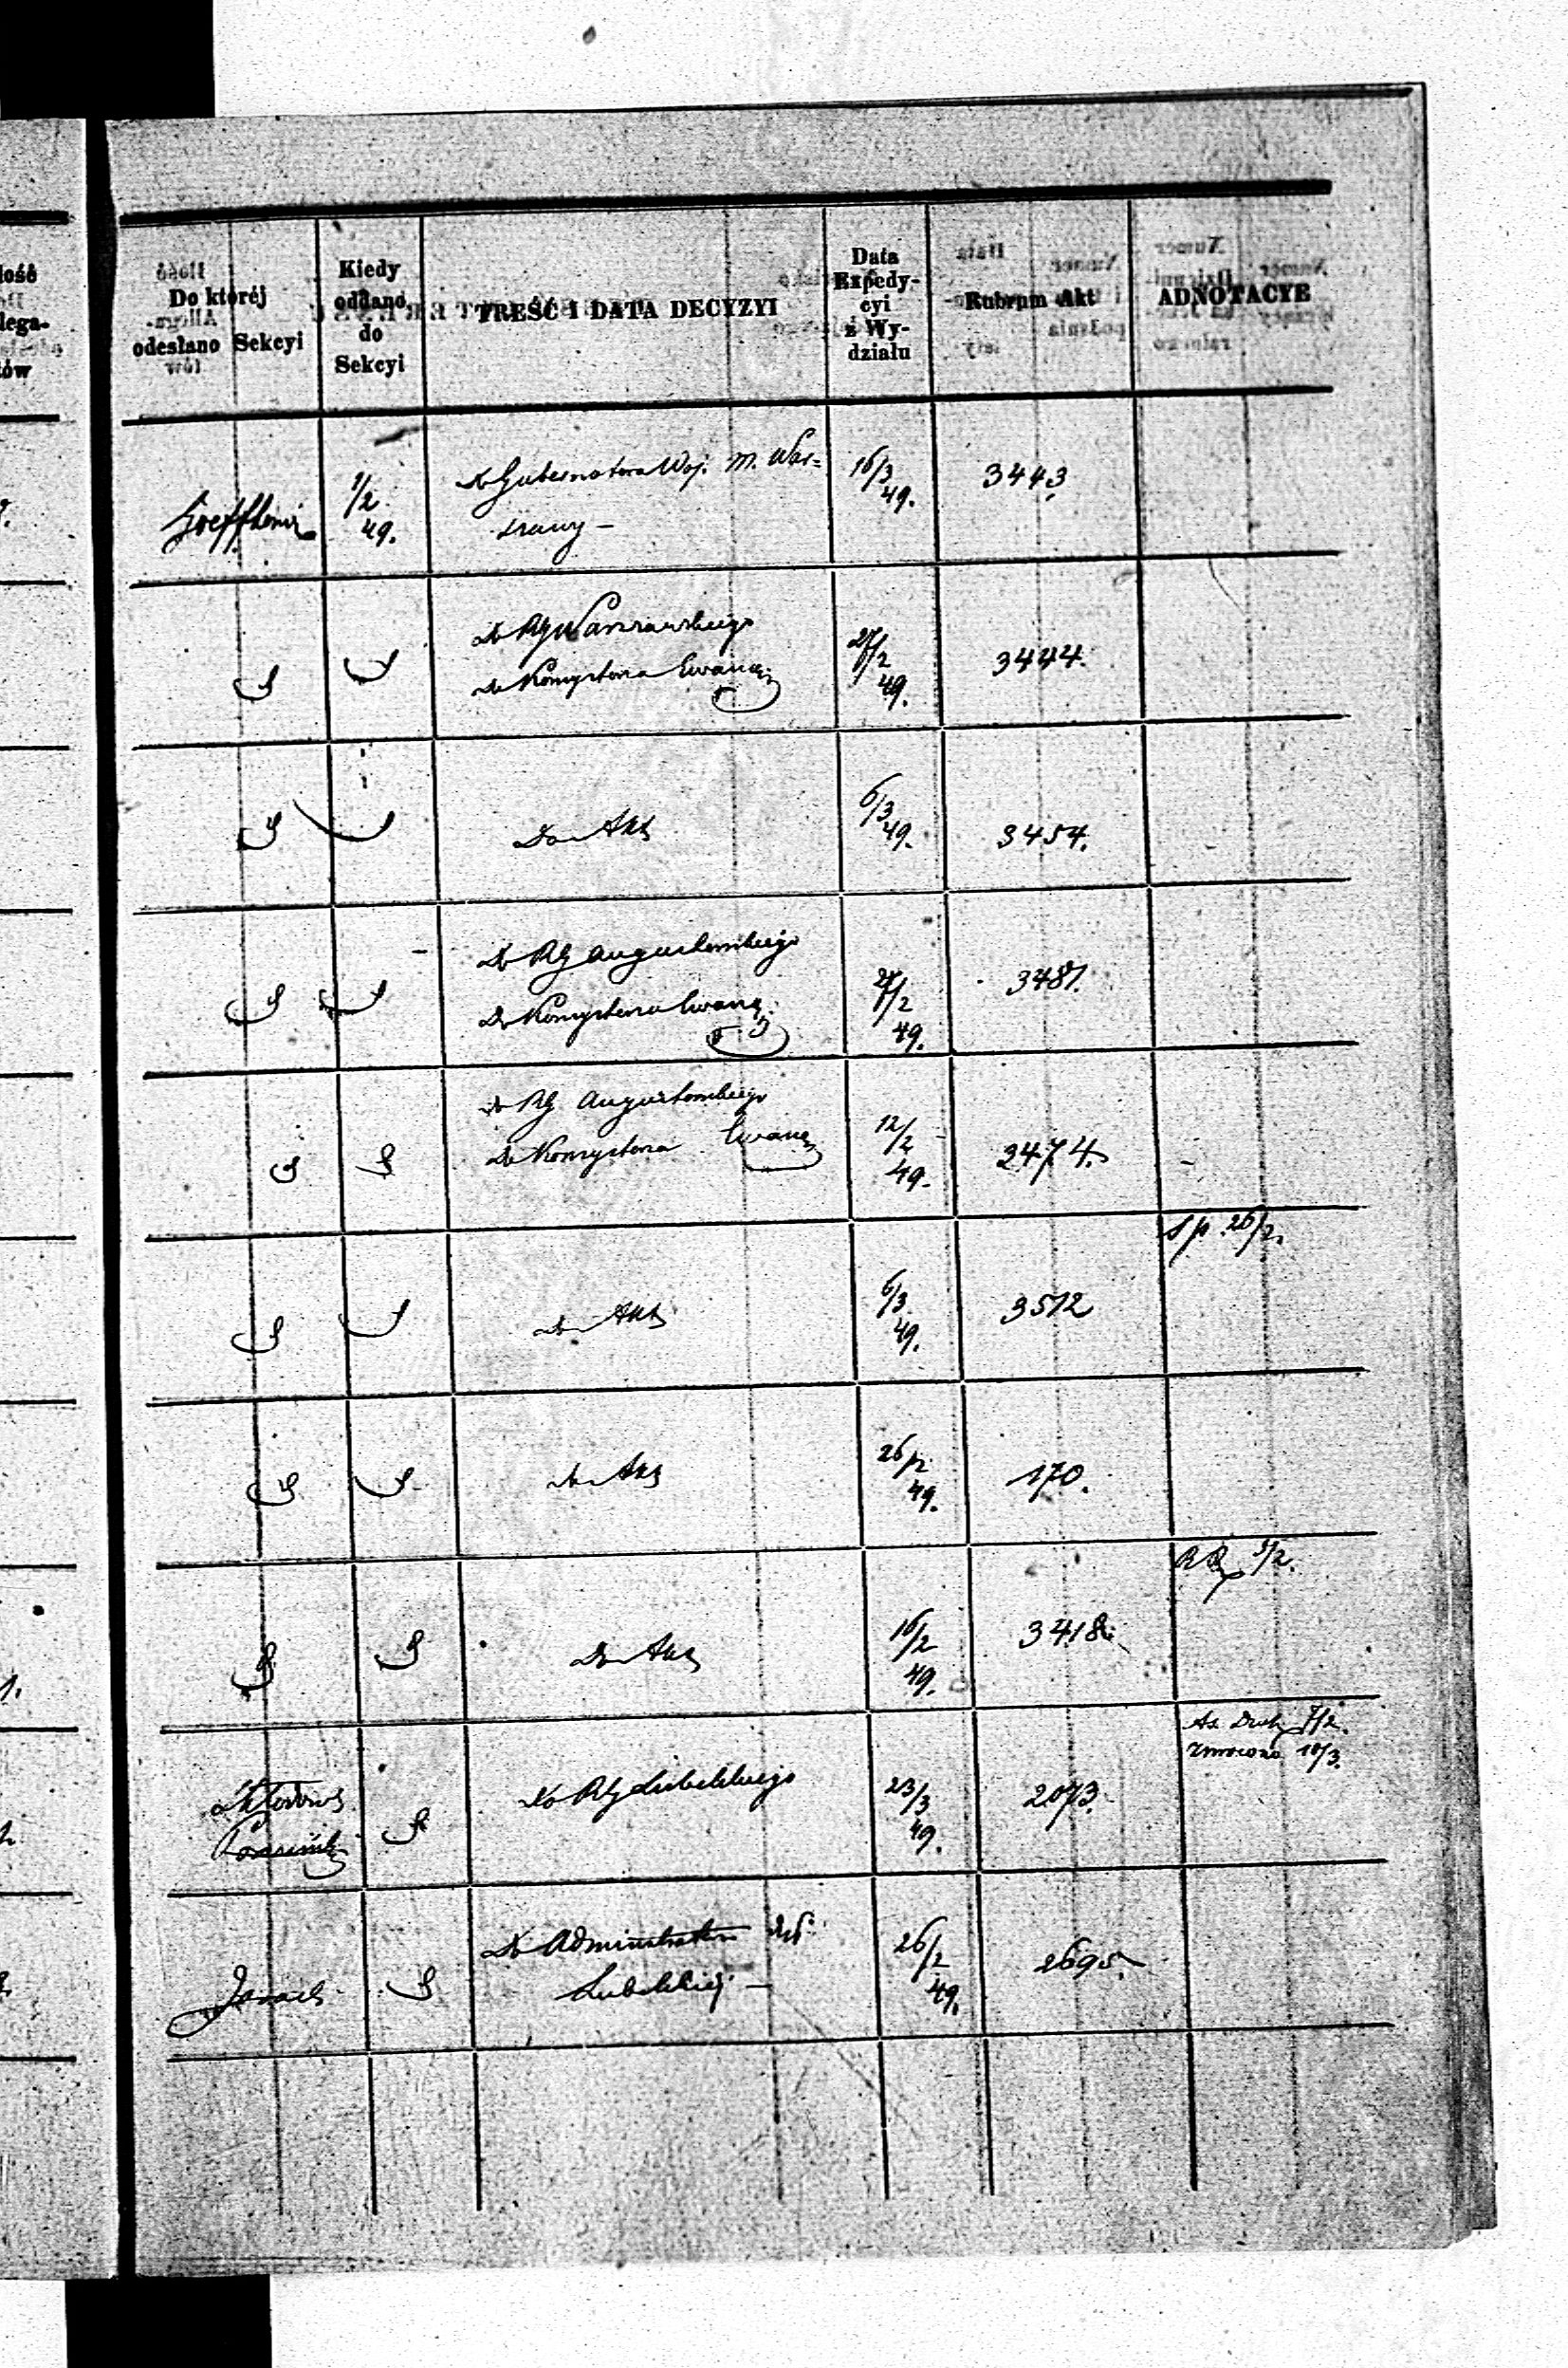 Do któréj
odesłano Sekcyi
Kiedy
oddano
do
Sekcyi
TREŚĆ I DATA DECYZYI
Data
Expedy-
cyi
z Wy-
działu
Rubrum Akt
ADNOTACYE
1/2 49.
Do Gubernatora Woj. M. War=
szawy –
16/3 49.
3443
Do RG Warszawskiego
Do Konsystorza Ewang.
27/2 49.
3444.
Do Akt
6/3 49.
3454.
Do RG Augustowskiego
Do Konsystorza Ewang.
27/2 49.
3481.
Do RG Augustowskiego
Do Konsystorza Ewang.
12/2 49.
2474.
Do Akt
6/3 49.
3512
26/2.
Do Akt
26/2 49.
170.
Do Akt
16/2 49.
3418.
Do RG Lubelskiego
23/3 49.
2073.
7/2.
Zwrócono 10/3.
Do Administratora
Lubelskiej –
26/2 49.
2695.